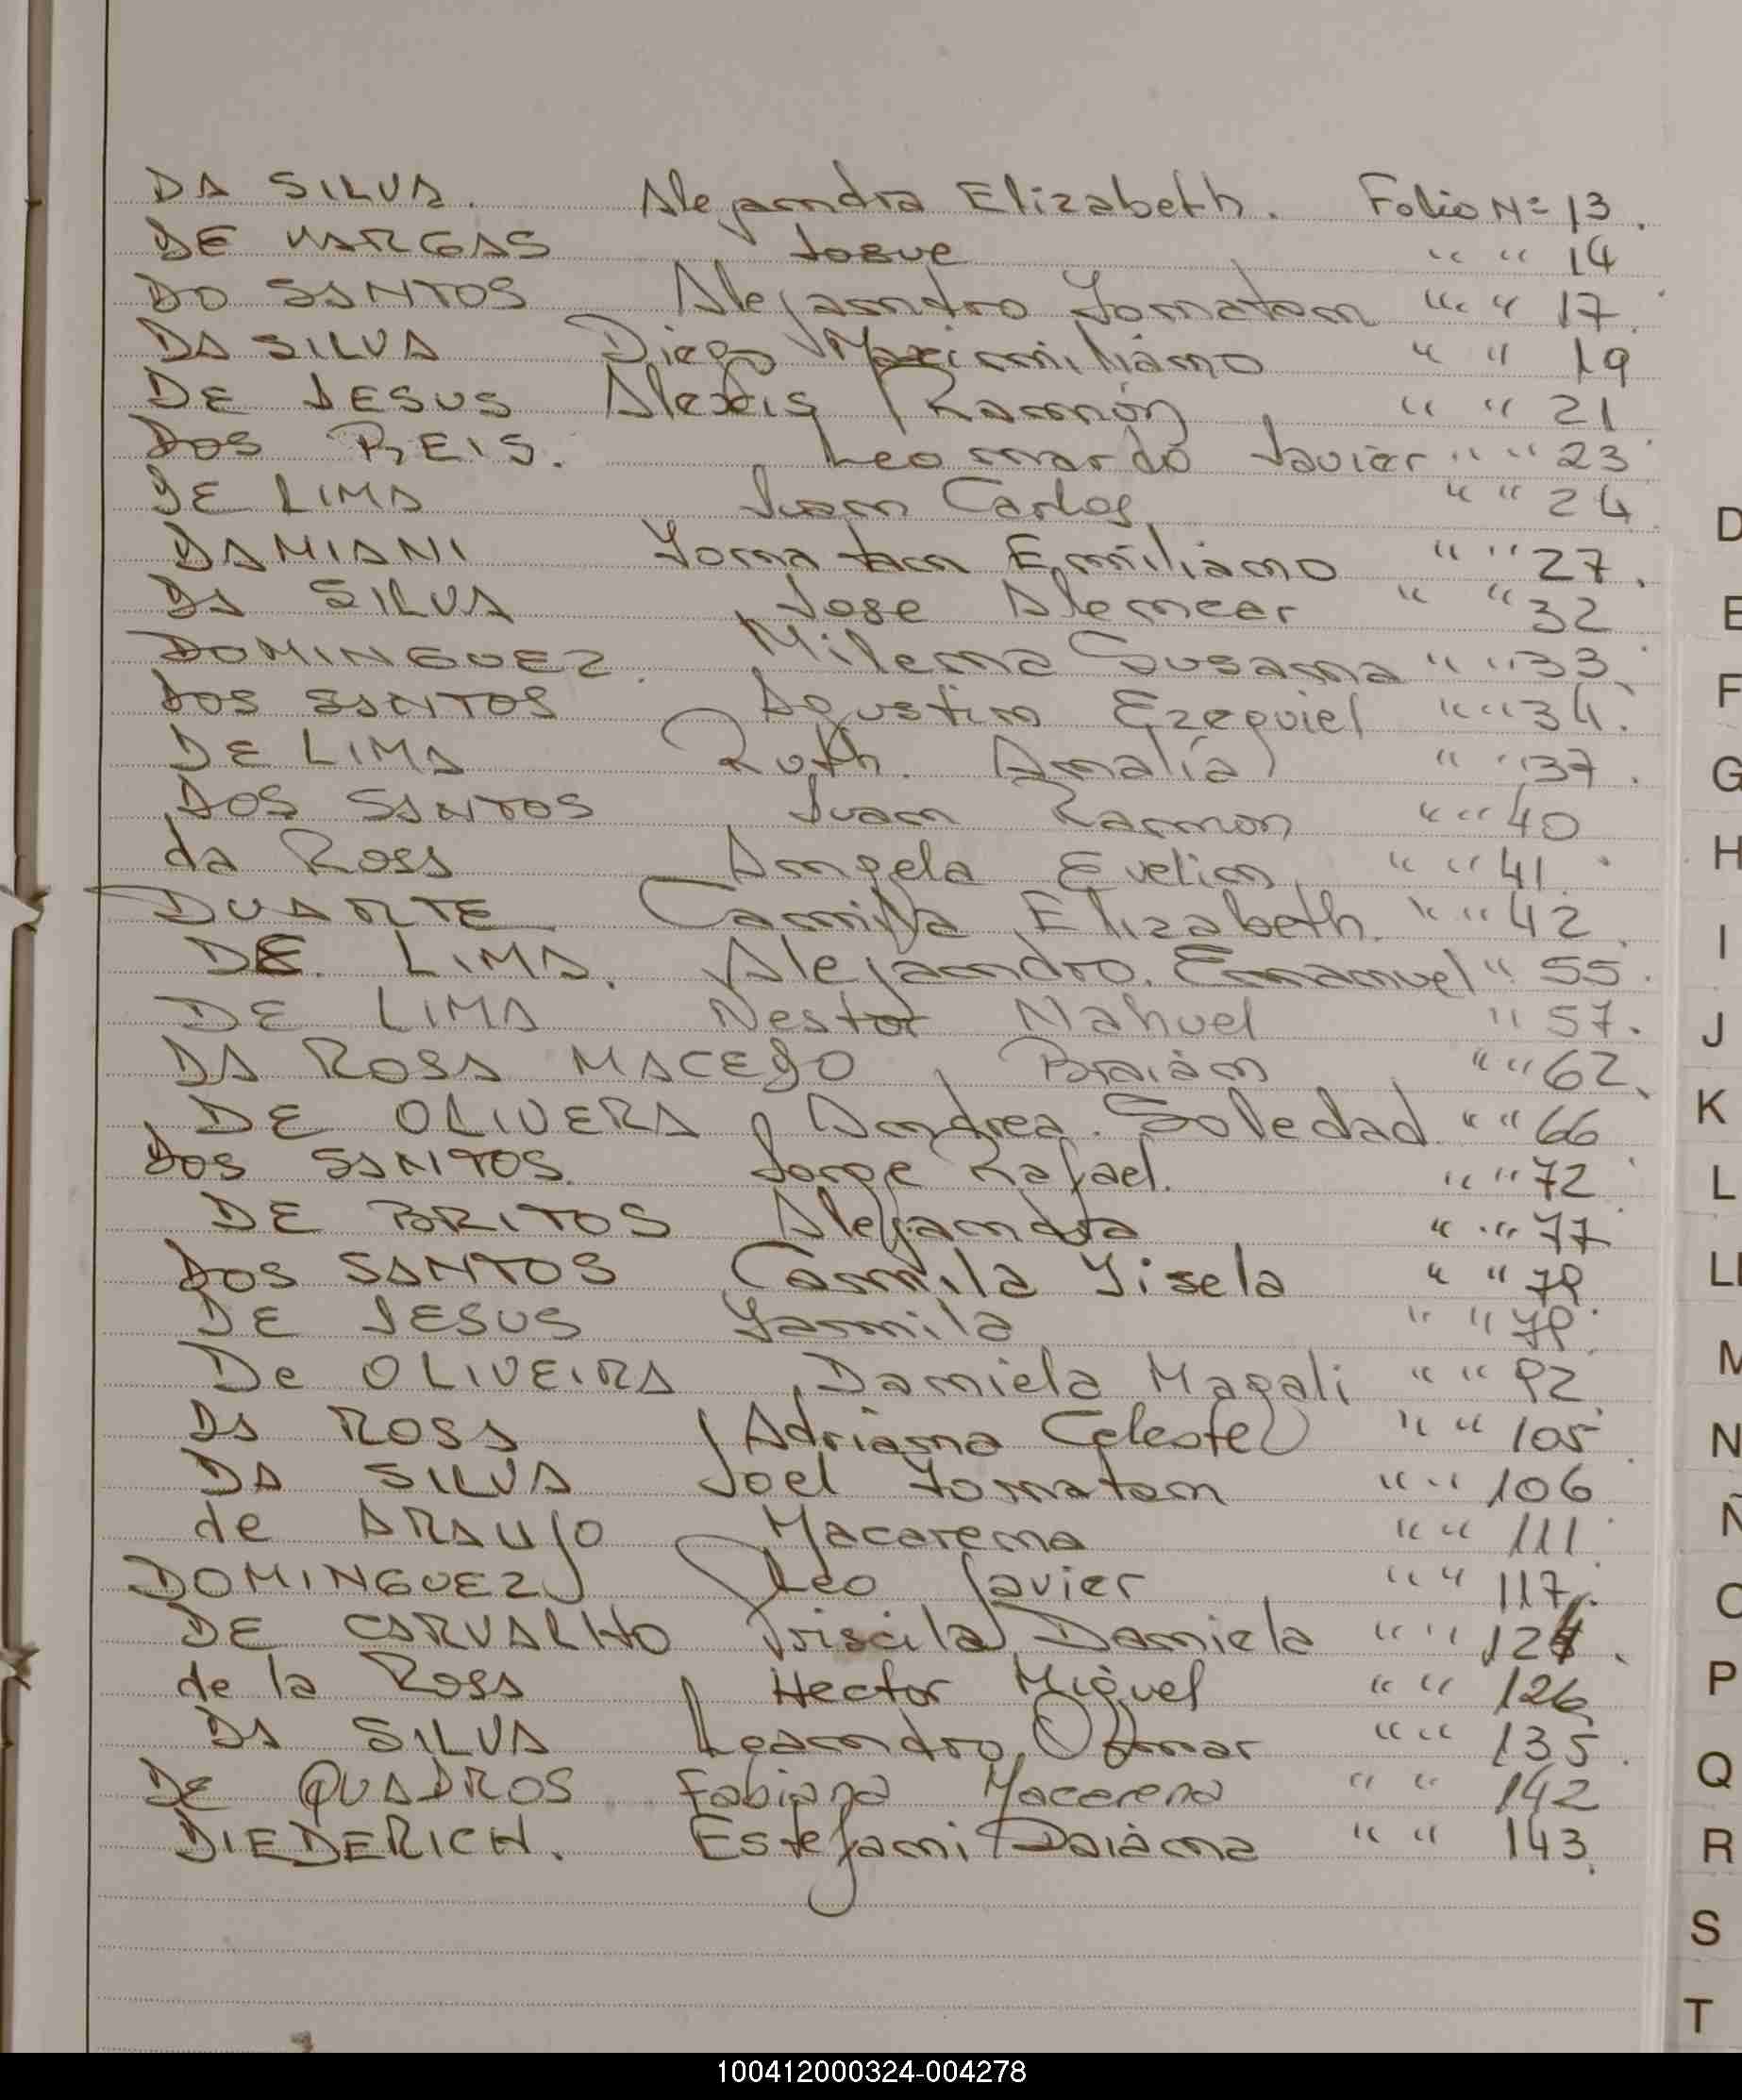 DA SILVA. Alejandra Elizabeth. Folio Nº 13.
DE VARGAS Josue " " 14
DO SANTOS Alejandro Jonatan " " 17.
DA SILVA Diego Maximiliano " " 19
DE JESUS Alexis Ramón " " 21
DOS REIS. Leonardo Javier " " 23
DE LIMA Juan Carlos " " 24
DAMIANI Jonatan Emiliano " " 27.
DA SILVA Jose Alencar " " 32
DOMINGUEZ. Milena Susana " " 33
DOS SANTOS Agustin Ezequiel " " 34.
DE LIMA Ruth. Analía " " 37.
DOS SANTOS Juan Ramon " " 40
da Rosa Angela Evelin " " 41.
DUARTE Camila Elizabeth. " " 42.
DE. LIMA. Alejandro. Emanuel " 55.
DE LIMA Nestor Nahuel " 57.
DA ROSA MACEDO, Braian " " 62.
DE OLIVERA, Andrea. Soledad " " 66
DOS SANTOS. Jorge Rafael. " " 72
DE BRITOS Alejandra " " 77
DOS SANTOS Camila Yisela " " 78
DE JESUS Yamila " " 79
De OLIVEIRA, Daniela Magali " " 92
DA ROSA Adriana Celeste " " 105
DA SILVA Joel Jonatan " " 106
de ARAUJO Macarena " " 111
DOMINGUEZ Leo Javier " " 117.
DE CARVALHO Priscila Daniela " " 124.
de la Rosa Hector Miguel " " 126
DA SILVA Leandro Omar " " 135.
DE QUADROS Fabiana Macarena " " 142
DIEDERICH. Estefani Daiana " " 143.
D
E
F
G
H
I
J
K
L
Ll
M
N
Ñ
O
P
Q
R
S
T
100412000324-004278